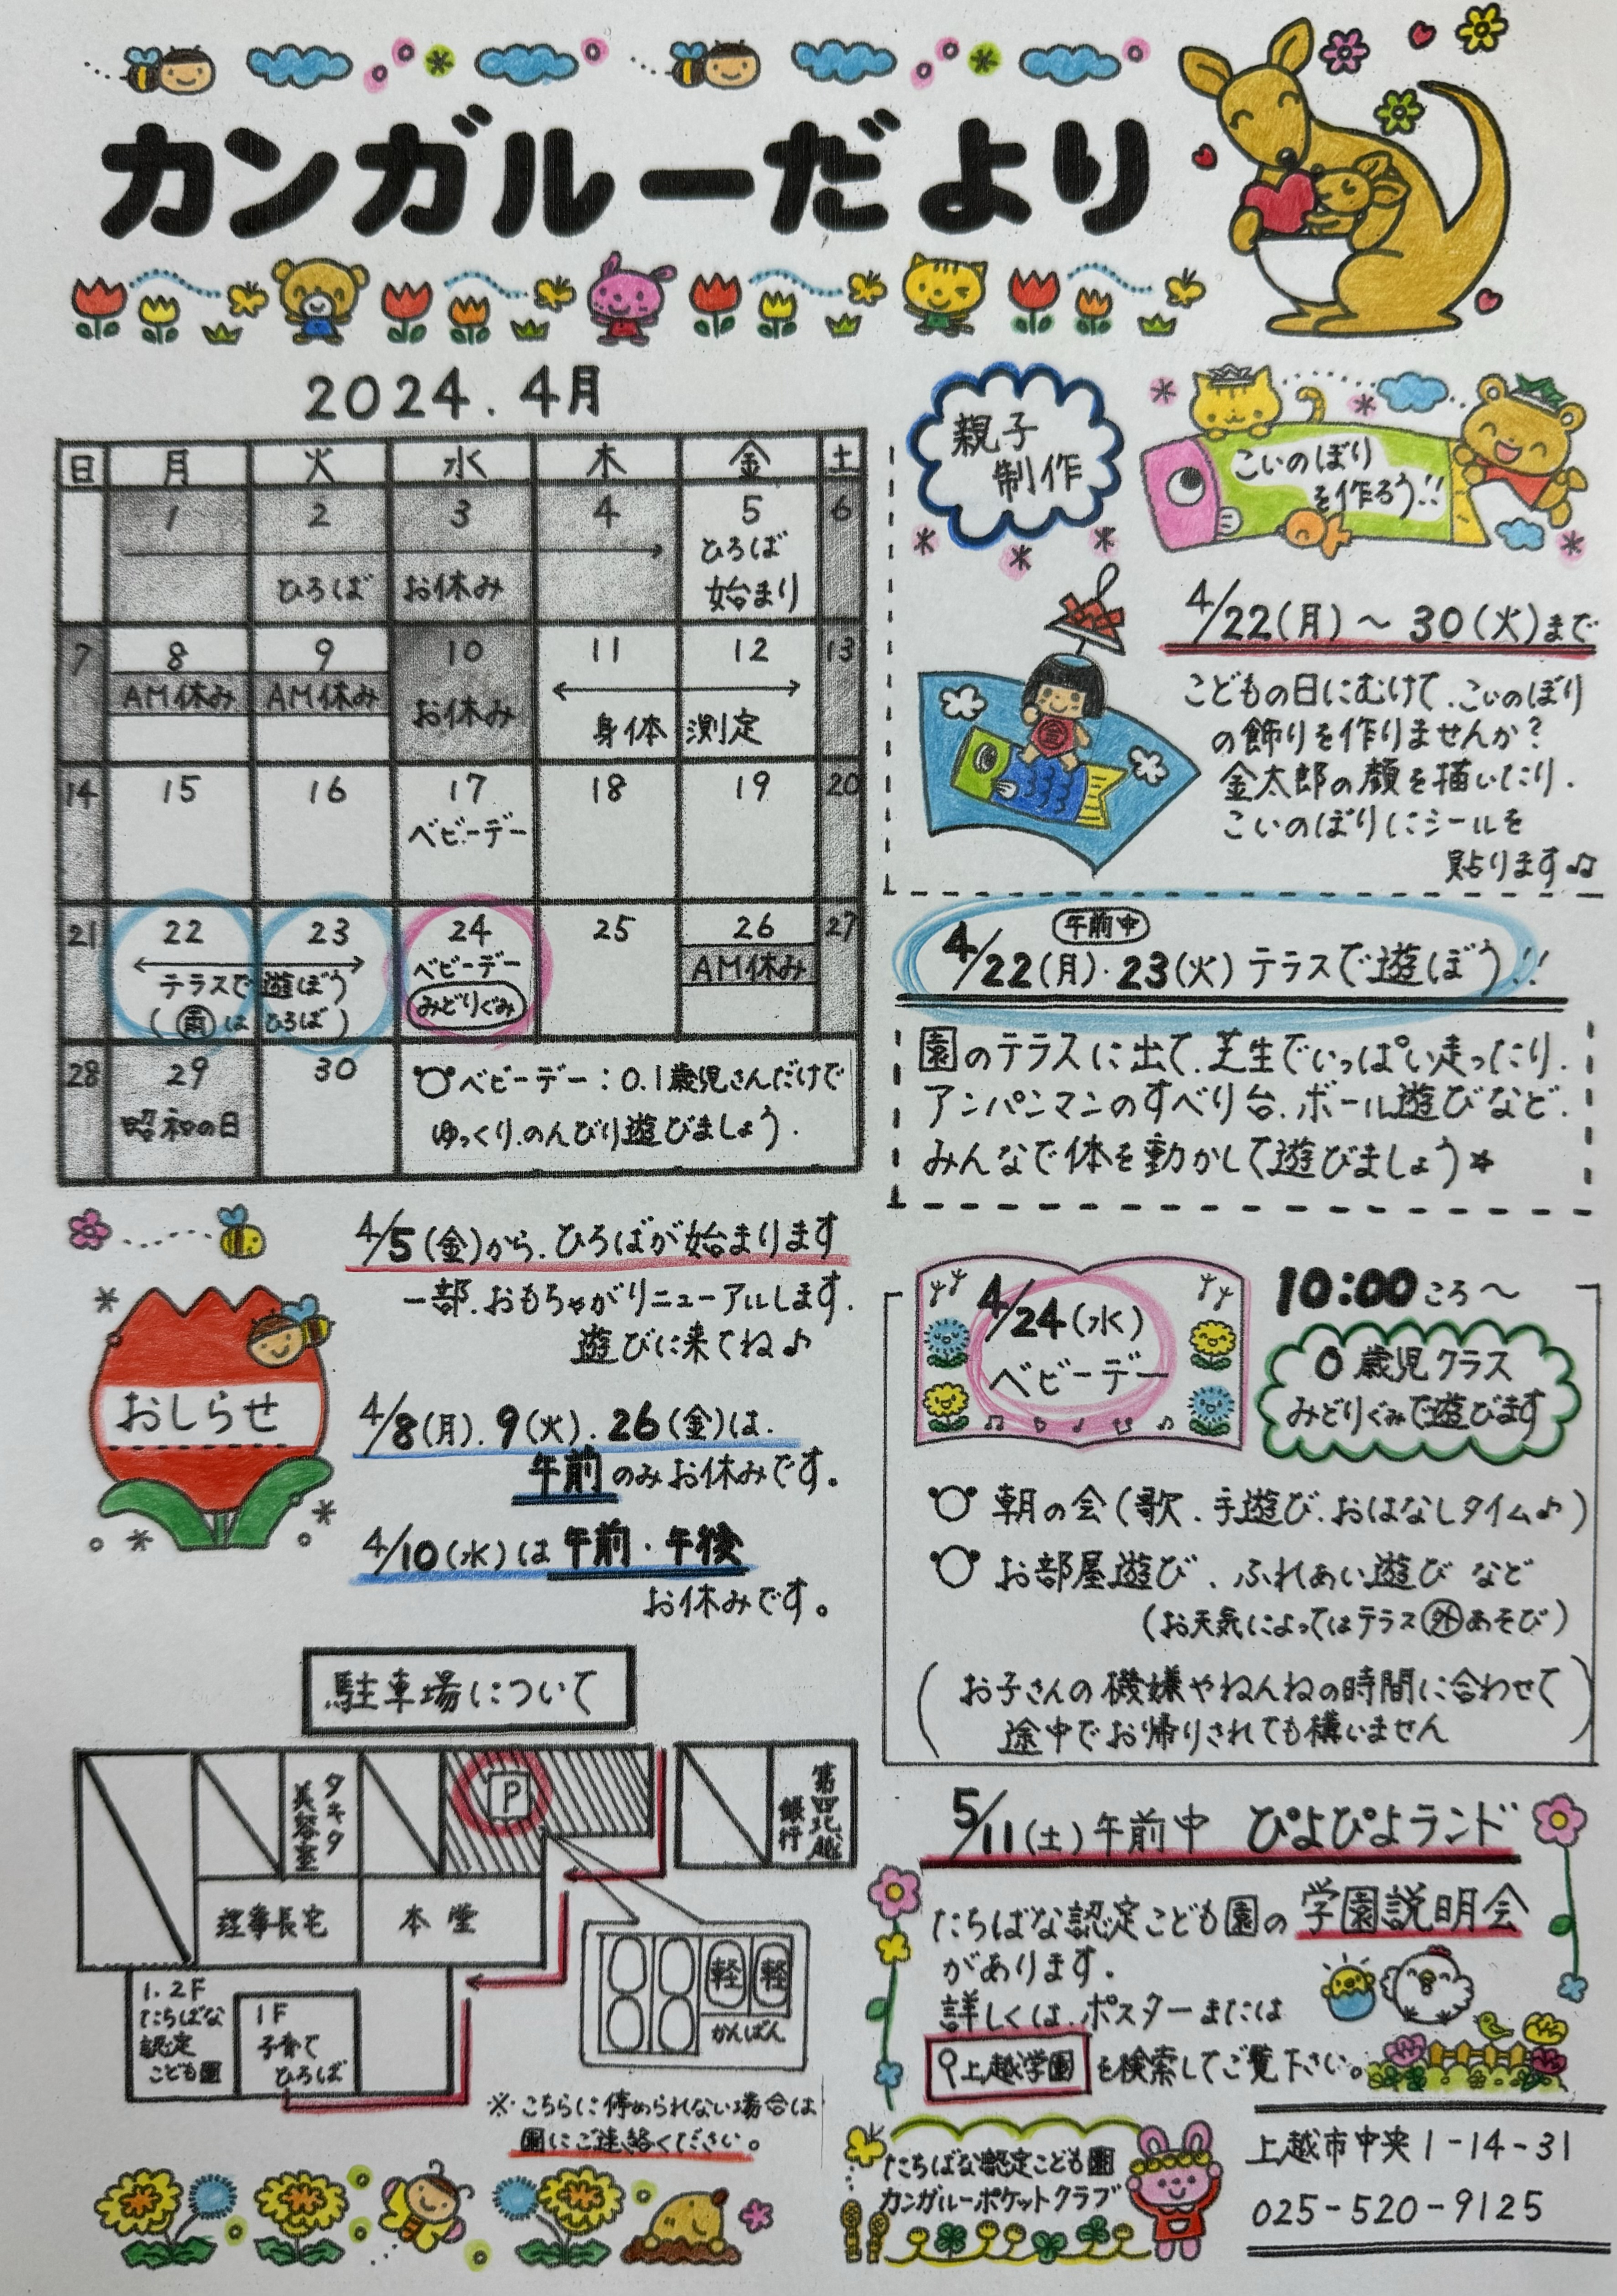 カンガルーだより
2024.4月
日 月 火 水 木 金 土
1 2 3 4 5 6
ひろば お休み
ひろば
始まり
7 8 9 10 11 12 13
AM休み AM休み お休み
身体測定
14 15 16 17 18 19 20
ベビーデー
21 22 23 24 25 26 27
テラスで遊ぼう
(雨はひろば)
ベビーデー
みどりぐみ
AM休み
28 29 30
昭和の日
ベビーデー:0.1歳児さんだけで
ゆっくり.のんびり遊びましょう.
親子
制作
こいのぼり
を作ろう!!
4/22(月)〜30(火)まで
こどもの日にむけて.こいのぼり
の飾りを作りませんか?
金太郎の顔を描いたり.
こいのぼりにシールを
貼ります♫
午前中
4/22(月)・23(火)テラスで遊ぼう!!
園のテラスに出て.芝生でいっぱい走ったり.
アンパンマンのすべり台.ボール遊びなど.
みんなで体を動かして遊びましょう*
おしらせ
4/5(金)から.ひろばが始まります
一部.おもちゃがリニューアルします.
遊びに来てね♪
4/8(月).9(火).26(金)は.
午前のみお休みです。
4/10(水)は午前・午後
お休みです。
4/24(水)
ベビーデー
10:00ころ〜
0歳児クラス
みどりぐみで遊びます
朝の会(歌.手遊び.おはなしタイム♪)
お部屋遊び.ふれあい遊びなど
(お天気によってはテラス外あそび)
(お子さんの機嫌やねんねの時間に合わせて
途中でお帰りされても構いません)
駐車場について
タキタ
美容室
P
第四北越
銀行
理事長宅
本堂
1.2F
たちばな
認定
こども園
1F
子育て
ひろば
軽 軽
かんばん
※こちらに停められない場合は
園にご連絡ください。
5/11(土)午前中 ぴよぴよランド
たちばな認定こども園の学園説明会
があります.
詳しくは.ポスターまたは
上越学園を検索してご覧下さい。
たちばな認定こども園
カンガルーポケットクラブ
上越市中央1-14-31
025-520-9125